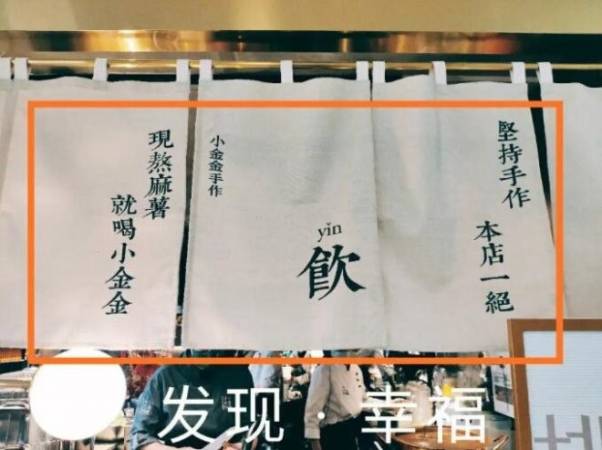 堅持手作
本店一絕
小金金手作
yǐn
飲
現熬麻薯
就喝小金金
发现·幸福